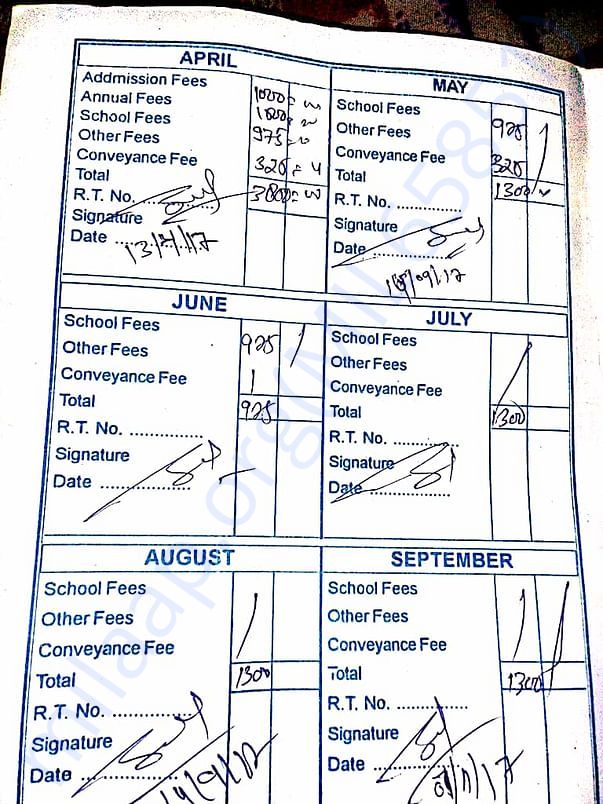 APRIL
Addmission Fees
Annual Fees 1000=00
School Fees
Other Fees 975=0
Conveyance Fee 325=
Total 3800=00
R.T. No. ..................
Signature
Date 13/4/17
MAY
School Fees 975
Other Fees
Conveyance Fee 325
Total 1300
R.T. No. ..................
Signature
Date ..................
JUNE
School Fees
Other Fees 975
Conveyance Fee
Total 975
R.T. No. ..................
Signature
Date ..................
JULY
School Fees
Other Fees
Conveyance Fee
Total 1300
R.T. No. ..................
Signature
Date ..................
AUGUST
School Fees
Other Fees
Conveyance Fee
Total 1300
R.T. No. ..................
Signature
Date ..................
SEPTEMBER
School Fees
Other Fees
Conveyance Fee
Total 1300
R.T. No. ..................
Signature
Date ..................